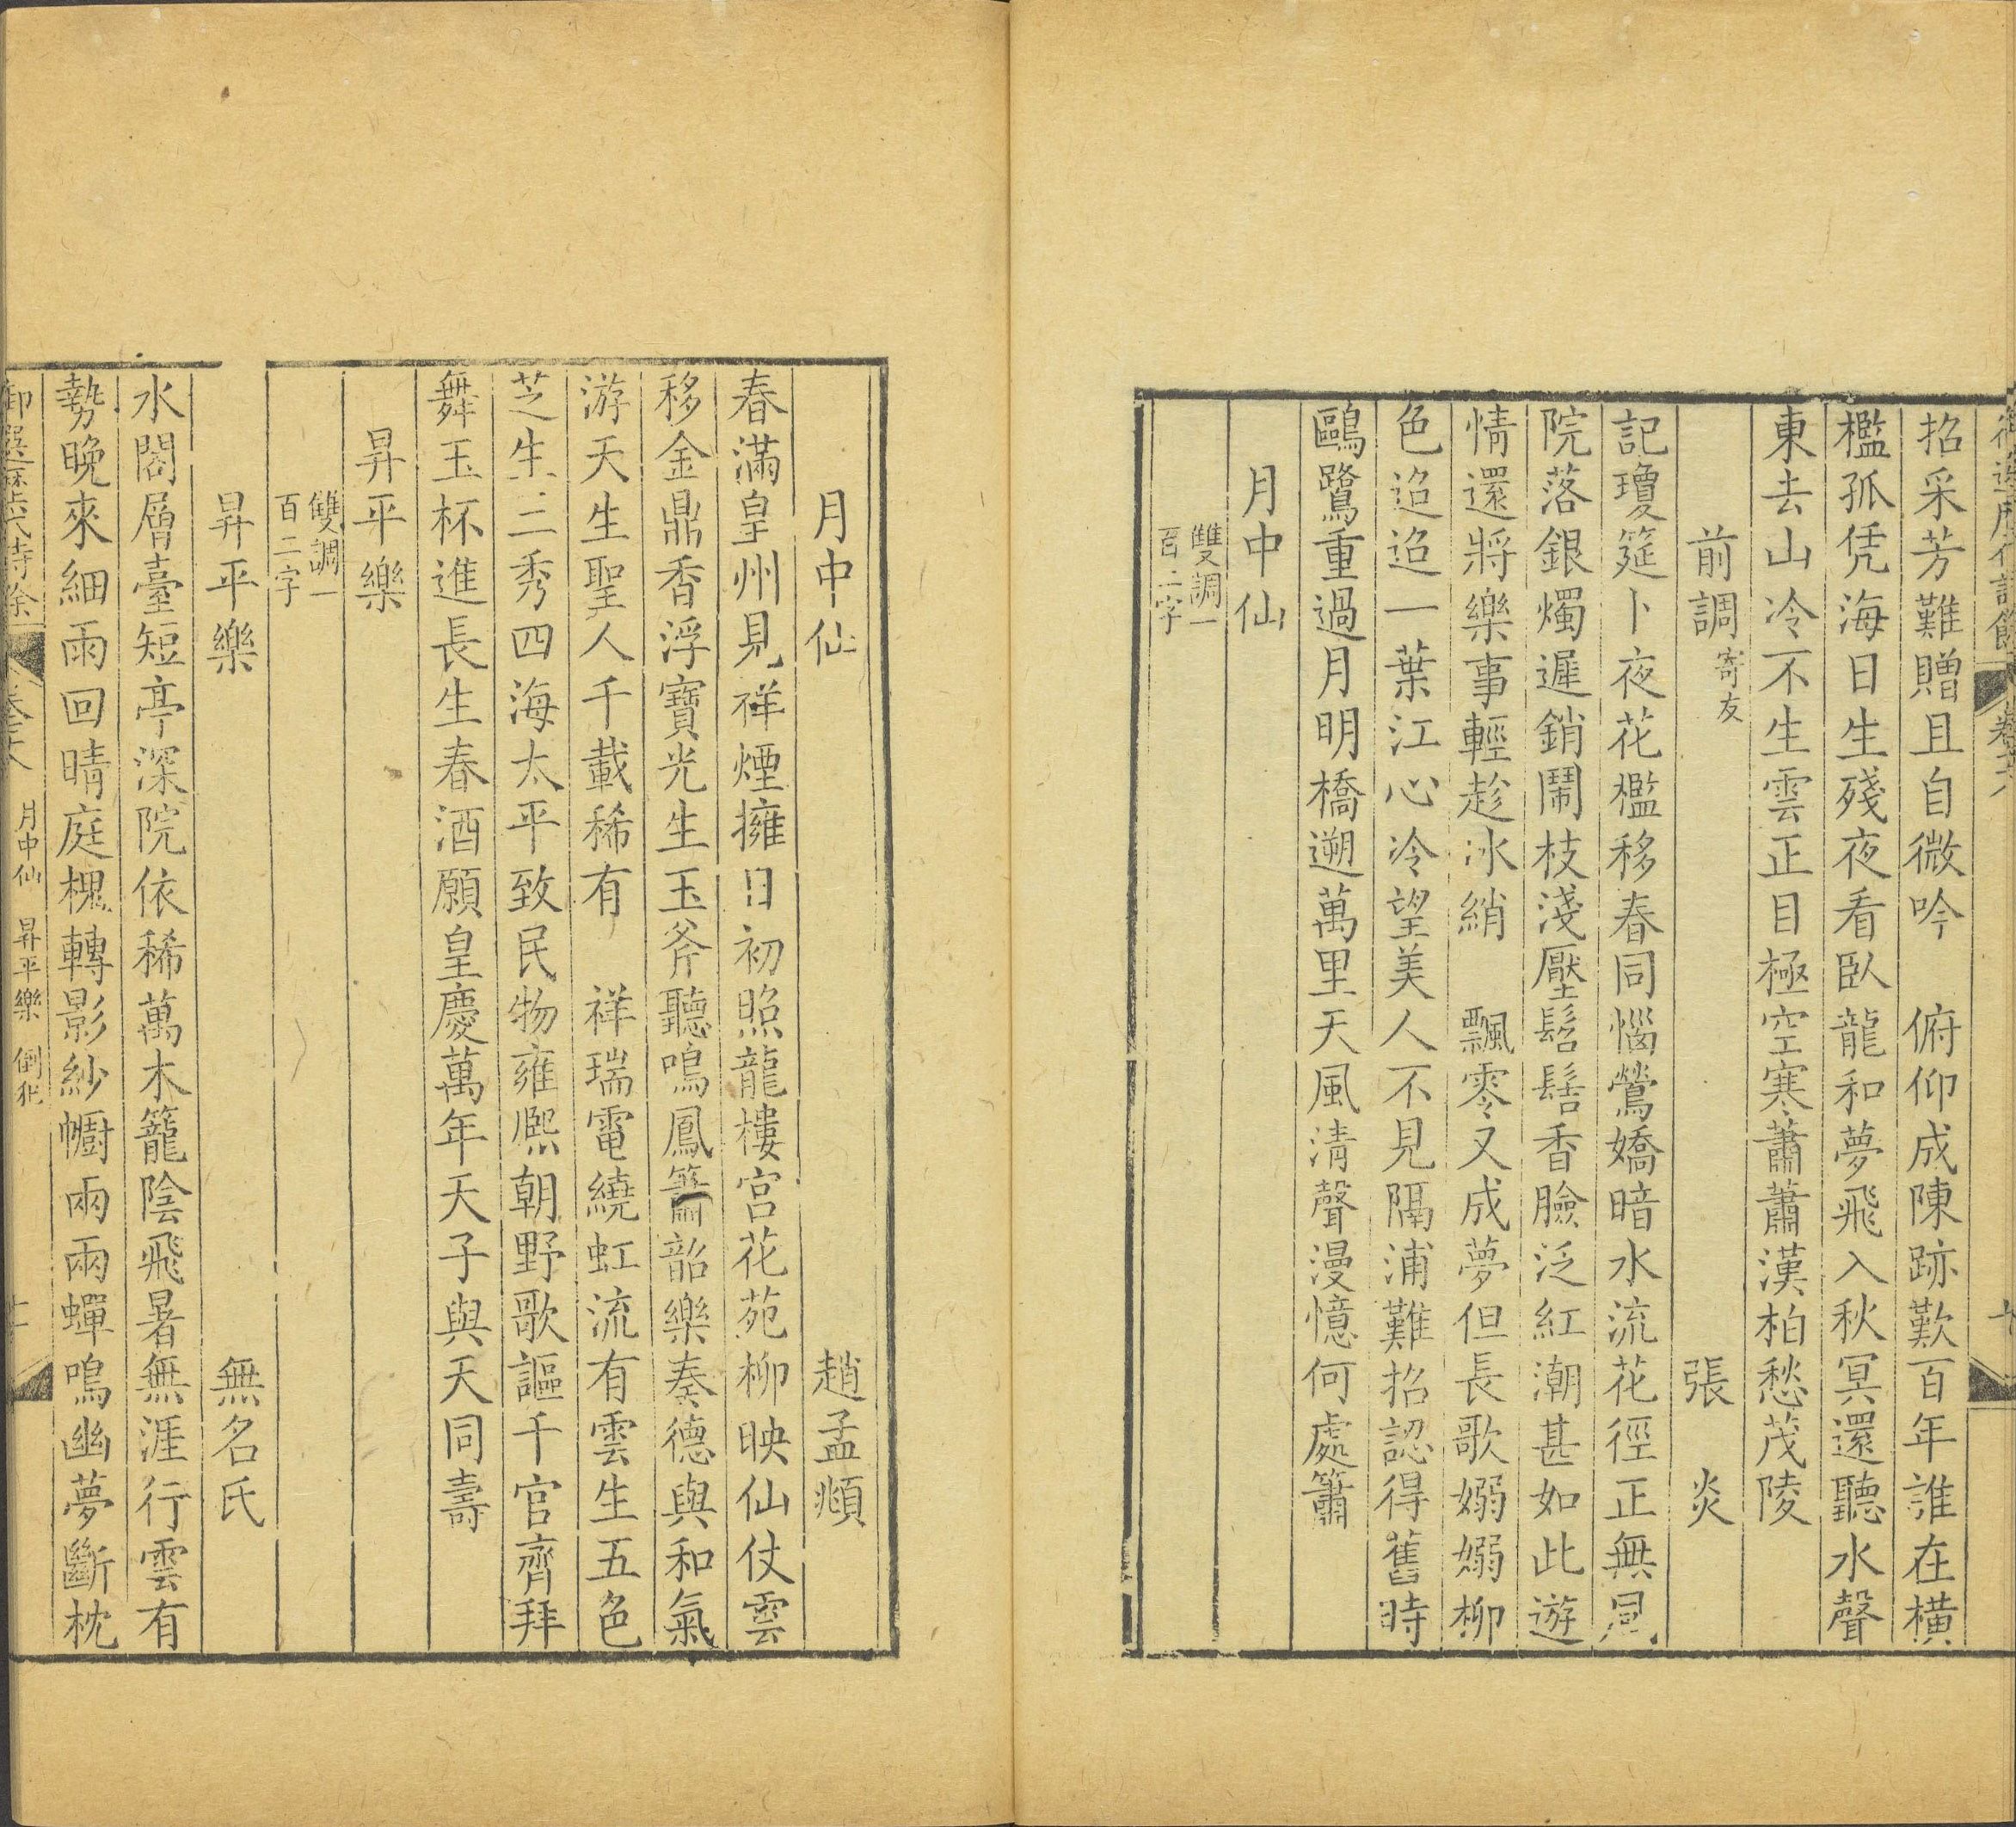 御選歷代詩餘 卷六
招采芳難贈且自微吟　俯仰成陳跡歎百年誰在橫
檻孤凭海日生殘夜看臥龍和夢飛入秋冥還聽水聲
東去山冷不生雲正目極空寒蕭蕭漢柏愁茂陵
前調 寄友 張炎
記瓊筵卜夜花檻移春同惱鶯嬌暗水流花徑正無風
院落銀燭遲銷鬧枝淺壓髻䯻香臉泛紅潮甚如此遊
情還將樂事輕趁冰綃　飄零又成夢但長歌嫋嫋柳
色迢迢一葉江心冷望美人不見隔浦難招認得舊時
鷗鷺重過月明橋遡萬里天風清聲漫憶何處簫
月中仙
雙調一
百二字
月中仙 趙孟頫
春滿皇州見祥煙擁日初照龍樓宮花苑柳映仙仗雲
移金鼎香浮寶光生玉斧聽鳴鳳簫韶樂奏德與和氣
游天生聖人千載稀有　祥瑞電繞虹流有雲生五色
芝生三秀四海太平致民物雍熙朝野歌謳千官齊拜
舞玉杯進長生春酒願皇慶萬年天子與天同壽
昇平樂
雙調一
百二字
昇平樂 無名氏
水閣層臺短亭深院依稀萬木籠陰飛暑無涯行雲有
勢晚來細雨回晴庭槐轉影紗㡡兩兩蟬鳴幽夢斷枕
御選歷代詩餘 卷六 月中仙 昇平樂 倒犯 十一